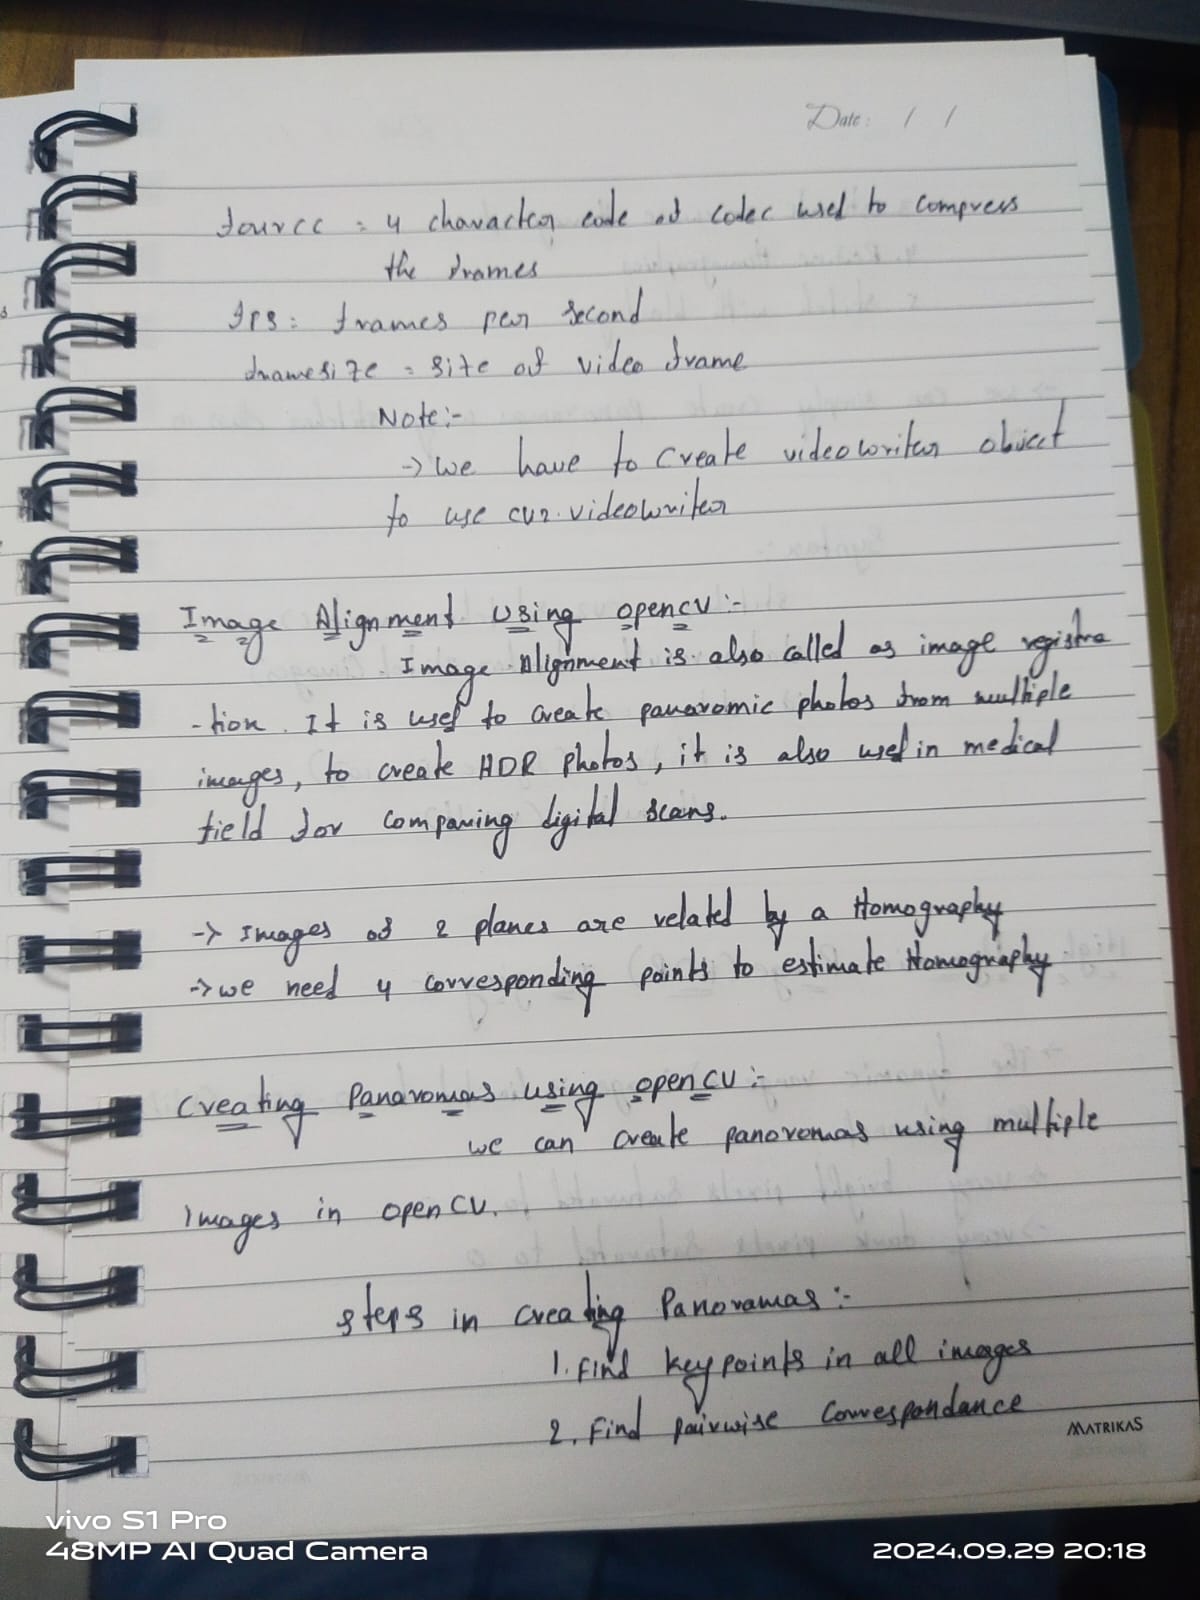 Date: / /
fourcc = 4 character code of codec used to compress
the frames
fps: frames per second
framesize = size of video frame
Note:-
-> we have to create videowriter object
to use cv2.videowriter
Image Alignment Using opencv:-
Image Alignment is also called as image registra
-tion. It is used to create panaromic photos from multiple
images, to create HDR photos, it is also used in medical
field for comparing digital scans.
-> Images of 2 planes are related by a Homography
-> we need 4 corresponding points to estimate Homography
Creating Panaromas using openCV:-
we can create panoromas using multiple
images in openCV.
steps in creating Panoramas:-
1. Find keypoints in all images
2. Find pairwise Correspondance
MATRIKAS
vivo S1 Pro
48MP AI Quad Camera
2024.09.29 20:18